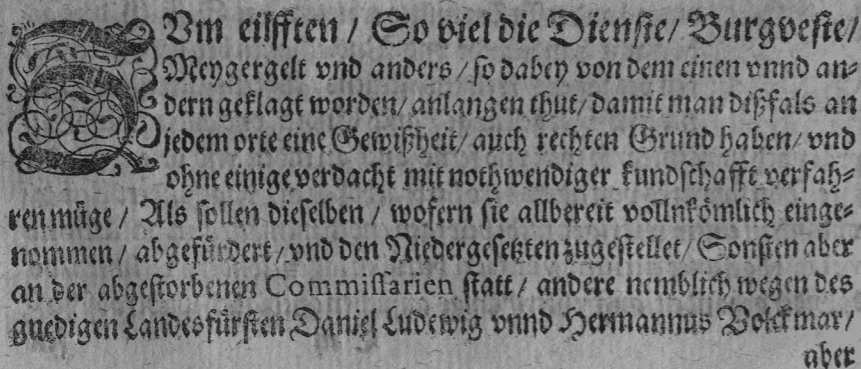 ZUm eilfften / So viel die Dienste / Burgveste /
Meygergelt vnd anders / so dabey von dem einen vnnd an-
dern geklagt worden / anlangen thut / damit man dißfals an
jedem orte eine Gewißheit / auch rechten Grund haben / vnd
ohne einige verdacht mit nothwendiger kundschafft verfah-
ren müge / Als sollen dieselben / wofern sie allbereit vollnkömlich einge-
nommen / abgefürdert / vnd den Niedergesetzten zugestellet / Sonsten aber
an der abgestorbenen Commissarien statt / andere nemblich wegen des
gnedigen Landesfürsten Daniel Ludewig vnnd Hermannus Volckmar /
aber